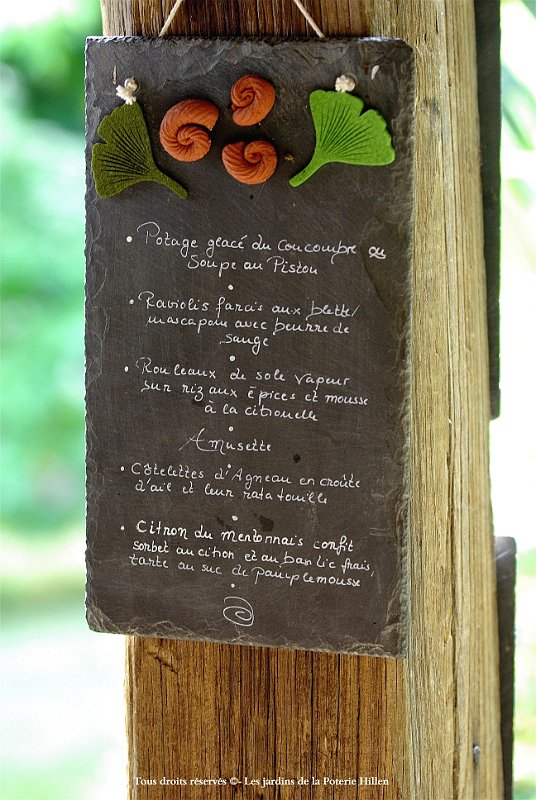 • Potage glacé du concombre ou
Soupe au Pistou
•
• Raviolis farcis aux blette/
mascapone avec beurre de
sauge
•
• Rouleaux de sole vapeur
sur riz aux épices et mousse
à la citronelle
Amusette
•
• Côtelettes d'Agneau en croûte
d'ail et leur ratatouille
•
• Citron du mentonnais confit
sorbet au citron et au basilic frais,
tarte au suc de pamplemousse
•
Tous droits réservés ©- Les jardins de la Poterie Hillen